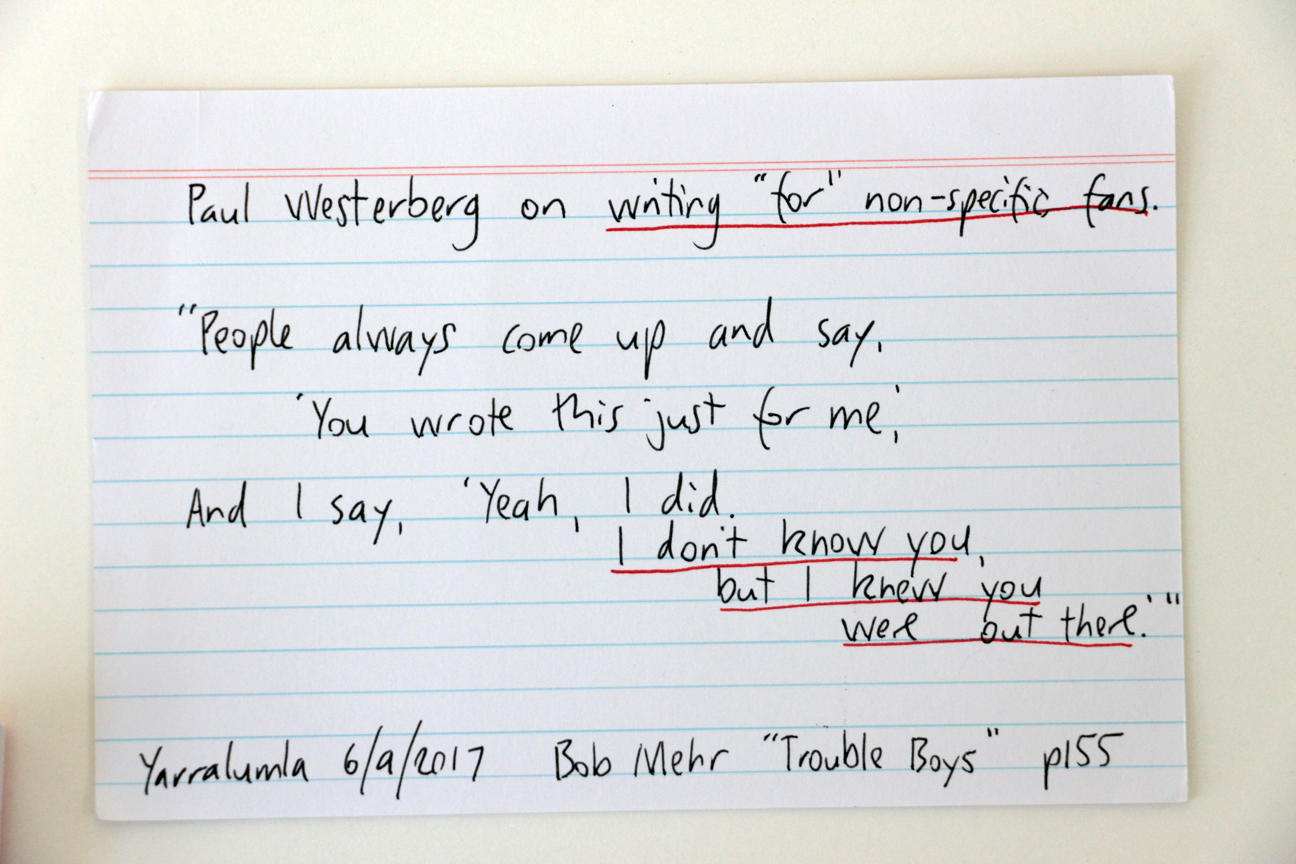 Paul Westerberg on writing "for" non-specific fans.
"People always come up and say,
'You wrote this just for me,'
And I say, 'Yeah, I did.
I don't know you,
but I knew you
were out there.'"
Yarralumla 6/9/2017 Bob Mehr "Trouble Boys" p155